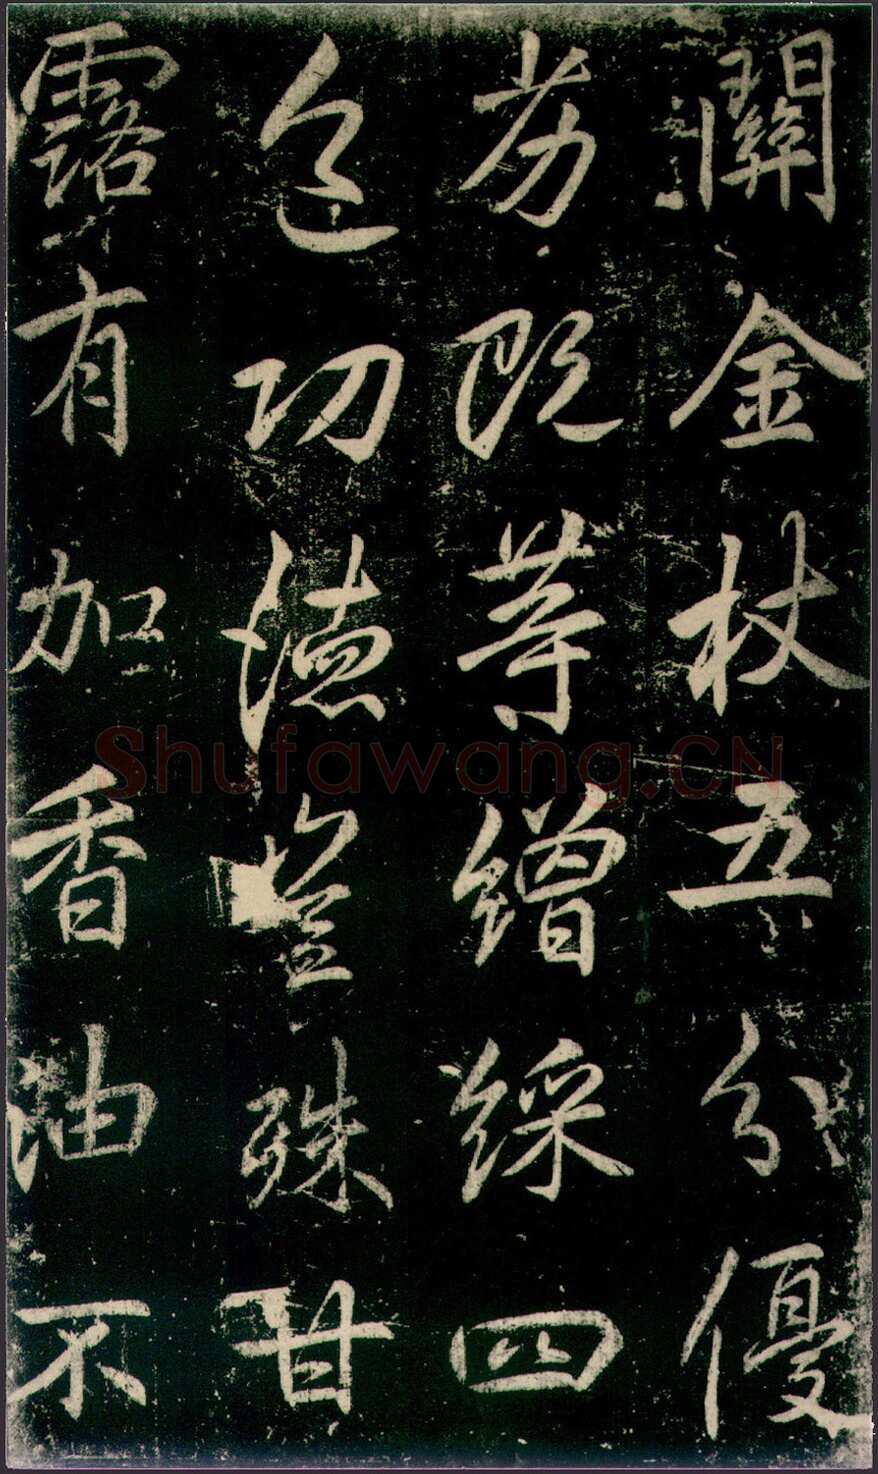 關金杖五分優
劣既等繒綵四
色功德豈殊甘
露有加香油不
Shufawang.CN